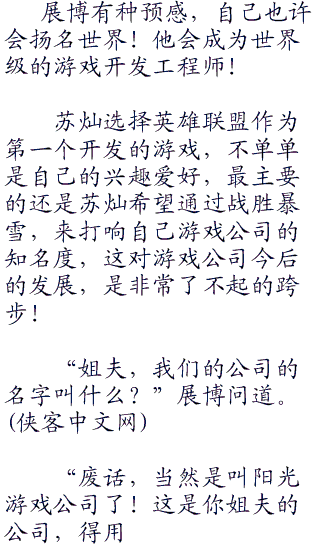 展博有种预感，自己也许
会扬名世界！他会成为世界
级的游戏开发工程师！
苏灿选择英雄联盟作为
第一个开发的游戏，不单单
是自己的兴趣爱好，最主要
的还是苏灿希望通过战胜暴
雪，来打响自己游戏公司的
知名度，这对游戏公司今后
的发展，是非常了不起的跨
步！
“姐夫，我们的公司的
名字叫什么？”展博问道。
(侠客中文网)
“废话，当然是叫阳光
游戏公司了！这是你姐夫的
公司，得用